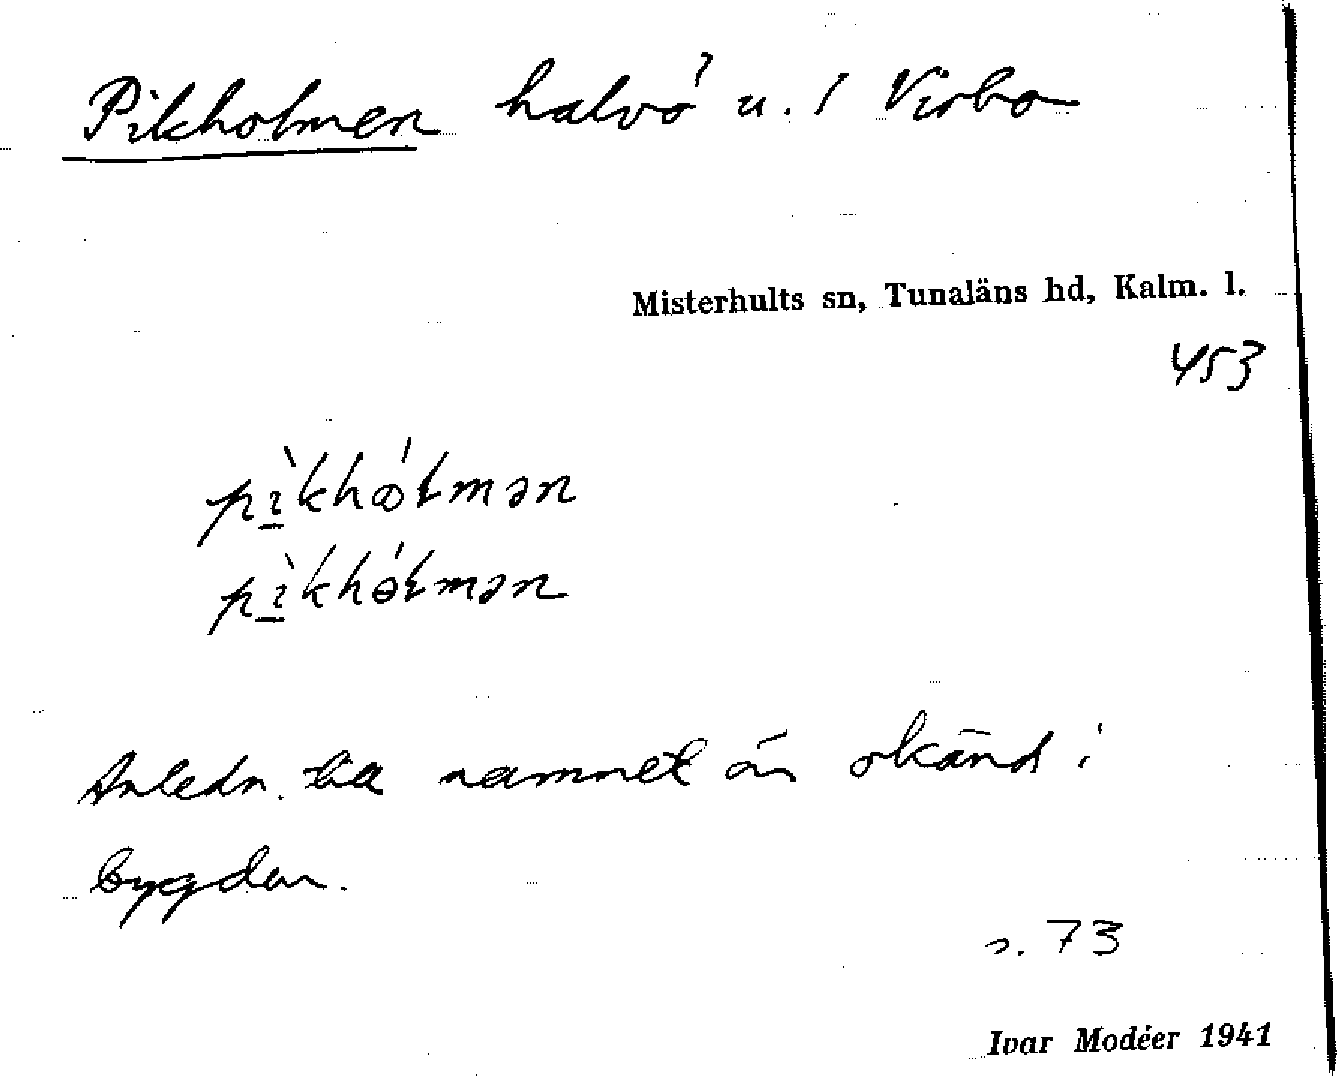 Pikholmen halvö u. 1 Virbo
Misterhults sn, Tunaläns hd, Kalm. l.
453
pìkhólmən
pìkhólmən
Anledn. till namnet är okänd i
bygden.
s. 73
Ivar Modéer 1941